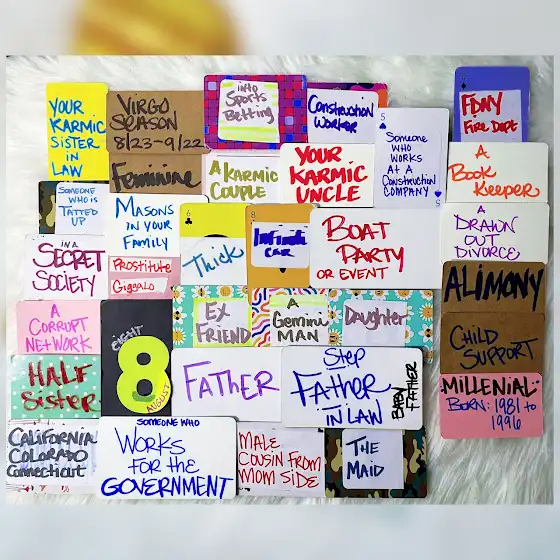 YOUR
KARMIC
SISTER
IN
LAW
VIRGO
SEASON
8/23-9/22
Feminine
into
Sports
Betting
Construction
Worker
5
Someone
WHO
WORKS
AT A
Construction
COMPANY
5
FDNY
Fire Dept
A
Book
Keeper
A KARMIC
COUPLE
YOUR
KARMIC
UNCLE
SOMEONE
WHO IS
TATTED
UP
MASONS
IN YOUR
FAMILY
6
Thick
8
Infiniti
CAR
BOAT
PARTY
OR EVENT
A
DRAWN
OUT
DIVORCE
IN A
SECRET
SOCIETY
Prostitute
Gigealo
ALIMONY
A
CORRUPT
NETWORK
EIGHT
8
AUGUST
EX
FRIEND
A
Gemini
MAN
Daughter
CHILD
SUPPORT
HALF
Sister
FATHER
STEP
FATHER
IN LAW
EVEN
FATHER
MILLENIAL:
BORN: 1981 to
1996
CALIFORNIA
COLORADO
Connecticut
SOMEONE WHO
WORKS
FOR THE
GOVERNMENT
MALE
COUSIN FROM
MOM SIDE
THE
MAID